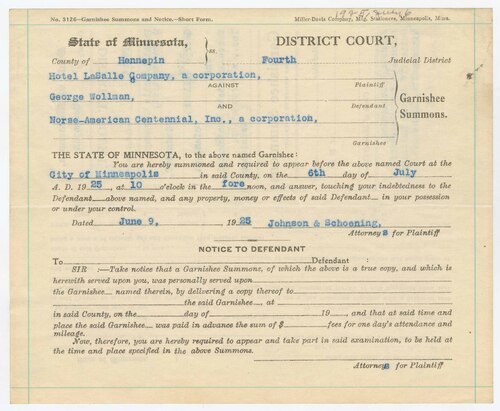 1925, July 6
No. 3126—Garnishee Summons and Notice.—Short Form.
Miller-Davis Company, Mfg. Stationers, Minneapolis, Minn.
State of Minnesota, ss. DISTRICT COURT,
County of Hennepin Fourth Judicial District
Hotel LaSalle Company, a corporation,
Plaintiff
AGAINST
George Wollman,
Defendant
AND
Norse-American Centennial, Inc., a corporation,
Garnishee
Garnishee
Summons.
THE STATE OF MINNESOTA, to the above named Garnishee:
You are hereby summoned and required to appear before the above named Court at the
City of Minneapolis in said County, on the 6th day of July
A. D. 1925, at 10 o'clock in the fore noon, and answer, touching your indebtedness to the
Defendant above named, and any property, money or effects of said Defendant in your possession
or under your control.
Dated June 9, 1925 Johnson & Schoening,
Attorneys for Plaintiff
NOTICE TO DEFENDANT
To Defendant :
SIR :—Take notice that a Garnishee Summons, of which the above is a true copy, and which is
herewith served upon you, was personally served upon
the Garnishee named therein, by delivering a copy thereof to
the said Garnishee, at
in said County, on the day of 19 , and that at said time and
place the said Garnishee was paid in advance the sum of $ fees for one day's attendance and
mileage.
Now, therefore, you are hereby required to appear and take part in said examination, to be held
at the time and place specified in the above Summons.
Attorneys for Plaintiff